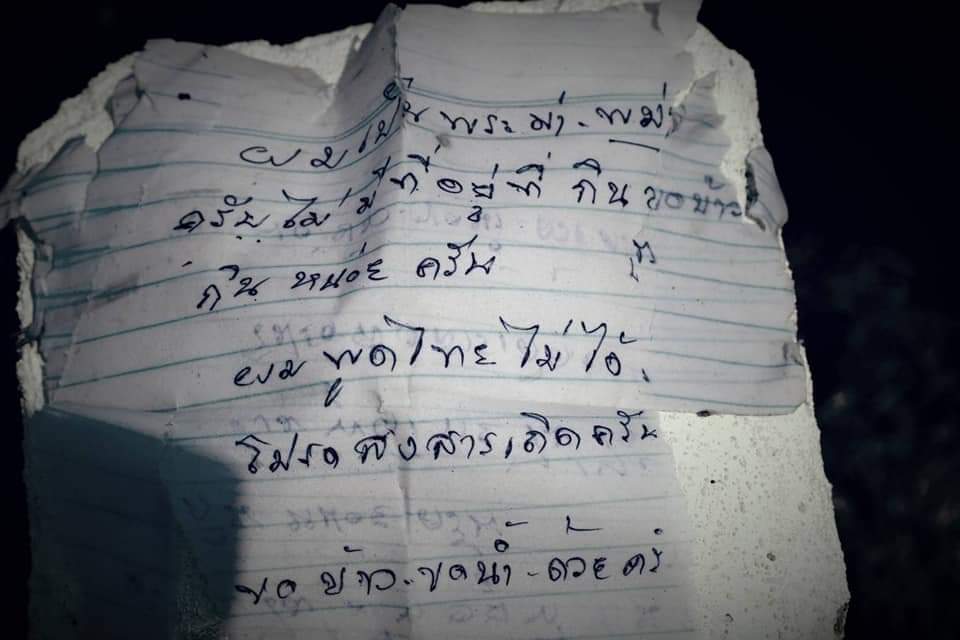 ผมเป็น พระม่า - พม่า
ครับ ไม่มีที่อยู่ที่ กิน ขอข้าว
กิน หน่อย ครับ
ผม พูดไทยไม่ได้
โปรด สงสารเถิดครับ
ขอ ข้าว - ขอน้ำ - ด้วย ครั